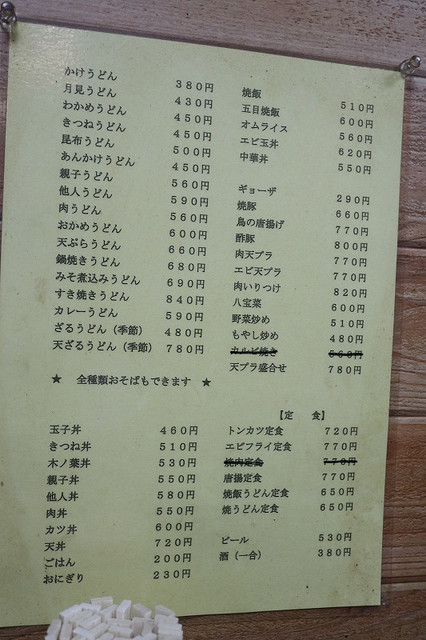 かけうどん 380円
月見うどん 430円
わかめうどん 450円
きつねうどん 450円
昆布うどん 500円
あんかけうどん 450円
親子うどん 560円
他人うどん 590円
肉うどん 560円
おかめうどん 600円
天ぷらうどん 660円
鍋焼きうどん 680円
みそ煮込みうどん 690円
すき焼きうどん 840円
カレーうどん 590円
ざるうどん（季節） 480円
天ざるうどん（季節） 780円
★ 全種類おそばもできます ★
焼飯 510円
五目焼飯 600円
オムライス 560円
エビ玉丼 620円
中華丼 550円
ギョーザ 290円
焼豚 660円
鳥の唐揚げ 770円
酢豚 800円
肉天プラ 770円
エビ天プラ 770円
肉いりつけ 820円
八宝菜 600円
野菜炒め 510円
もやし炒め 480円
カルビ焼き 560円
天プラ盛合せ 780円
玉子丼 460円
きつね丼 510円
木ノ葉丼 530円
親子丼 550円
他人丼 580円
肉丼 550円
カツ丼 600円
天丼 720円
ごはん 200円
おにぎり 230円
【定 食】
トンカツ定食 720円
エビフライ定食 770円
焼肉定食 770円
唐揚定食 770円
焼飯うどん定食 650円
焼うどん定食 650円
ビール 530円
酒（一合） 380円